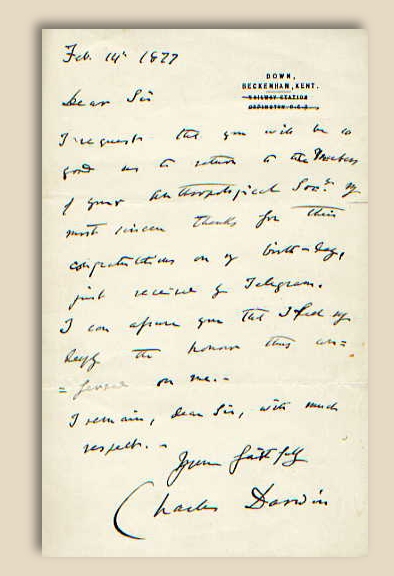 Feb. 14th 1877
DOWN,
BECKENHAM, KENT.
RAILWAY STATION
ORPINGTON. S.E.R.
Dear Sir
I request that you will be so
good as to return to the Members
of your Anthropological Socy. my
most sincere thanks for their
congratulations on my birth-day,
just received by Telegram.
I can assure you that I feel
deeply the honour thus con=
=ferred on me.-
I remain, dear Sir, with much
respect.-
Yours faithfully
Charles Darwin